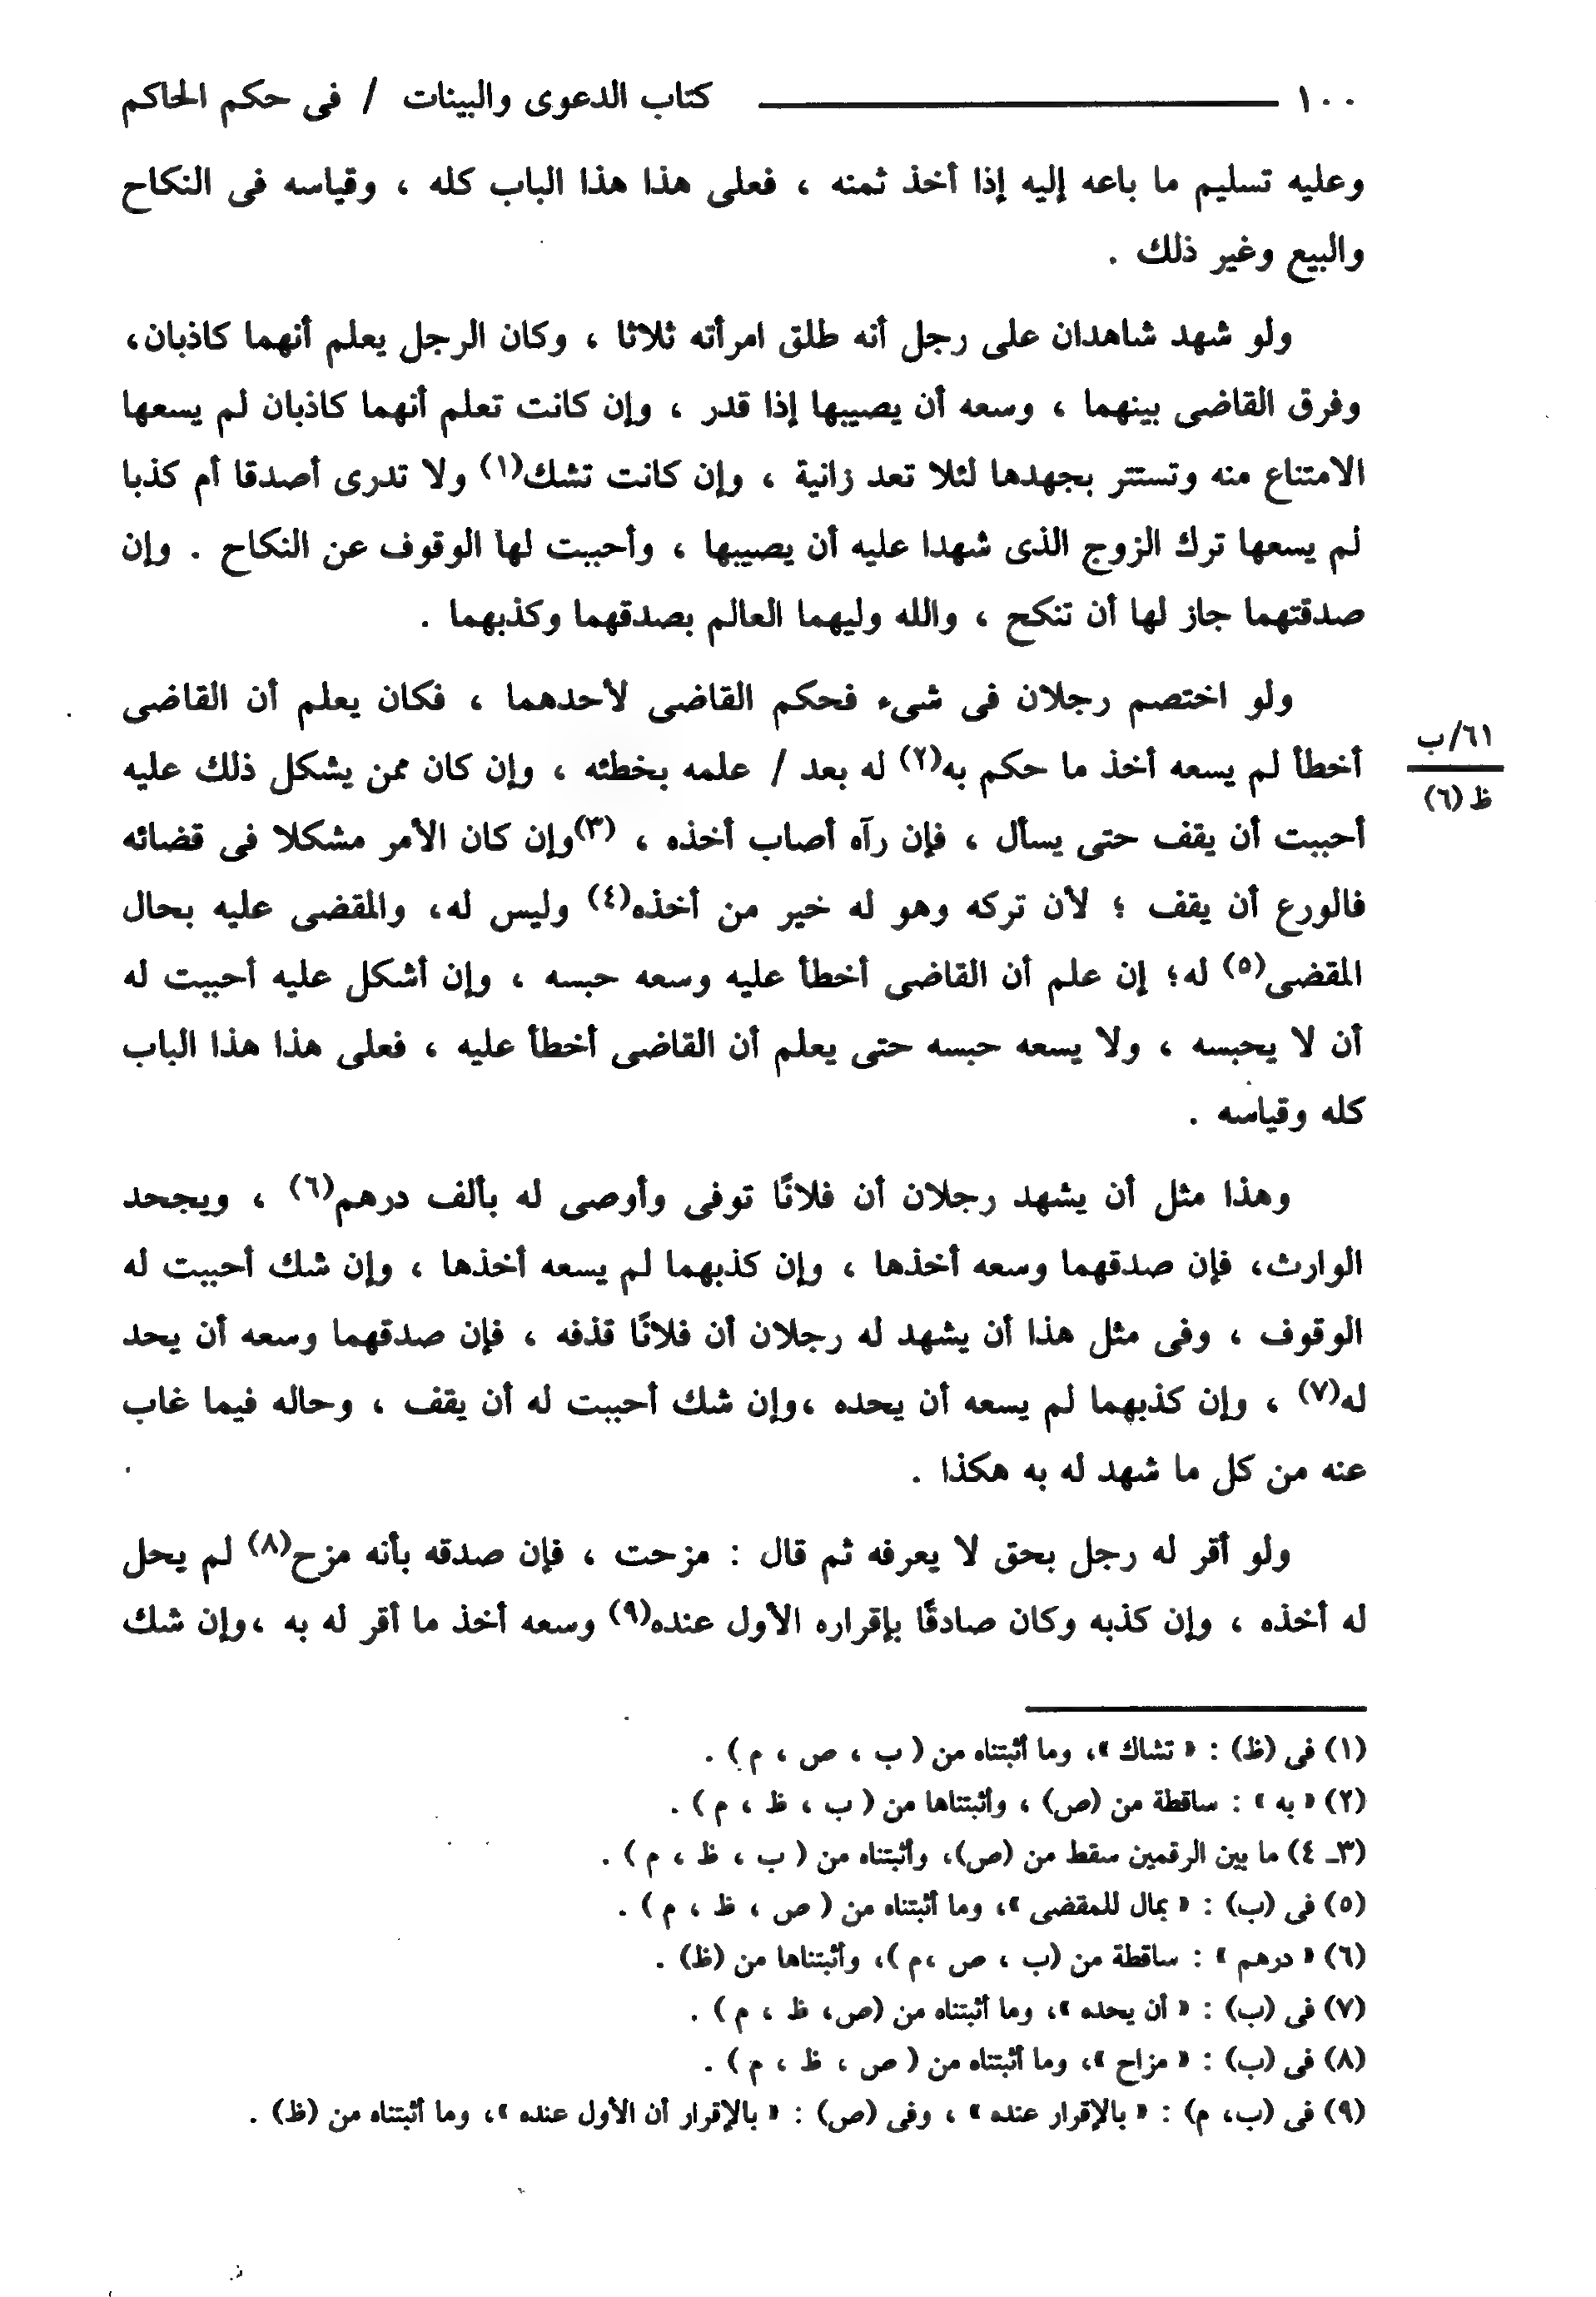 ١٠٠ كتاب الدعوى والبينات / فى حكم الحاكم
وعليه تسليم ما باعه إليه إذا أخذ ثمنه ، فعلى هذا هذا الباب كله ، وقياسه فى النكاح
والبيع وغير ذلك .
ولو شهد شاهدان على رجل أنه طلق امرأته ثلاثا ، وكان الرجل يعلم أنهما كاذبان،
وفرق القاضى بينهما ، وسعه أن يصيبها إذا قدر ، وإن كانت تعلم أنهما كاذبان لم يسعها
الامتناع منه وتستتر بجهدها لئلا تعد زانية ، وإن كانت تشك(١) ولا تدرى أصدقا أم كذبا
لم يسعها ترك الزوج الذى شهدا عليه أن يصيبها ، وأحببت لها الوقوف عن النكاح . وإن
صدقتهما جاز لها أن تنكح ، والله وليهما العالم بصدقهما وكذبهما .
ولو اختصم رجلان فى شىء فحكم القاضى لأحدهما ، فكان يعلم أن القاضى
أخطأ لم يسعه أخذ ما حكم به(٢) له بعد / علمه بخطئه ، وإن كان ممن يشكل ذلك عليه
٦١/ب
ظ (٦)
أحببت أن يقف حتى يسأل ، فإن رآه أصاب أخذه ، (٣)وإن كان الأمر مشكلا فى قضائه
فالورع أن يقف ؛ لأن تركه وهو له خير من أخذه(٤) وليس له، والمقضى عليه بحال
المقضى(٥) له؛ إن علم أن القاضى أخطأ عليه وسعه حبسه ، وإن أشكل عليه أحببت له
أن لا يحبسه ، ولا يسعه حبسه حتى يعلم أن القاضى أخطأ عليه ، فعلى هذا هذا الباب
كله وقياسه .
وهذا مثل أن يشهد رجلان أن فلانًا توفى وأوصى له بألف درهم(٦) ، ويجحد
الوارث، فإن صدقهما وسعه أخذها ، وإن كذبهما لم يسعه أخذها ، وإن شك أحببت له
الوقوف ، وفى مثل هذا أن يشهد له رجلان أن فلانًا قذفه ، فإن صدقهما وسعه أن يحد
له(٧) ، وإن كذبهما لم يسعه أن يحده ،وإن شك أحببت له أن يقف ، وحاله فيما غاب
عنه من كل ما شهد له به هكذا .
ولو أقر له رجل بحق لا يعرفه ثم قال : مزحت ، فإن صدقه بأنه مزح(٨) لم يحل
له أخذه ، وإن كذبه وكان صادقًا بإقراره الأول عنده(٩) وسعه أخذ ما أقر له به ،وإن شك
(١) فى (ظ) : « تشاك »، وما أثبتناه من ( ب ، ص ، م ) .
(٢) « به » : ساقطة من (ص) ، وأثبتناها من ( ب ، ظ ، م ) .
(٣ـ ٤) ما بين الرقمين سقط من (ص)، وأثبتناه من ( ب ، ظ ، م ) .
(٥) فى (ب) : « بمال للمقضى »، وما أثبتناه من ( ص ، ظ ، م ) .
(٦) « درهم » : ساقطة من (ب ، ص ،م )، وأثبتناها من (ظ) .
(٧) فى (ب) : « أن يحده »، وما أثبتناه من (ص، ظ ، م ) .
(٨) فى (ب) : « مزاح »، وما أثبتناه من ( ص ، ظ ، م ) .
(٩) فى (ب، م) : « بالإقرار عنده » ، وفى (ص) : « بالإقرار أن الأول عنده »، وما أثبتناه من (ظ) .